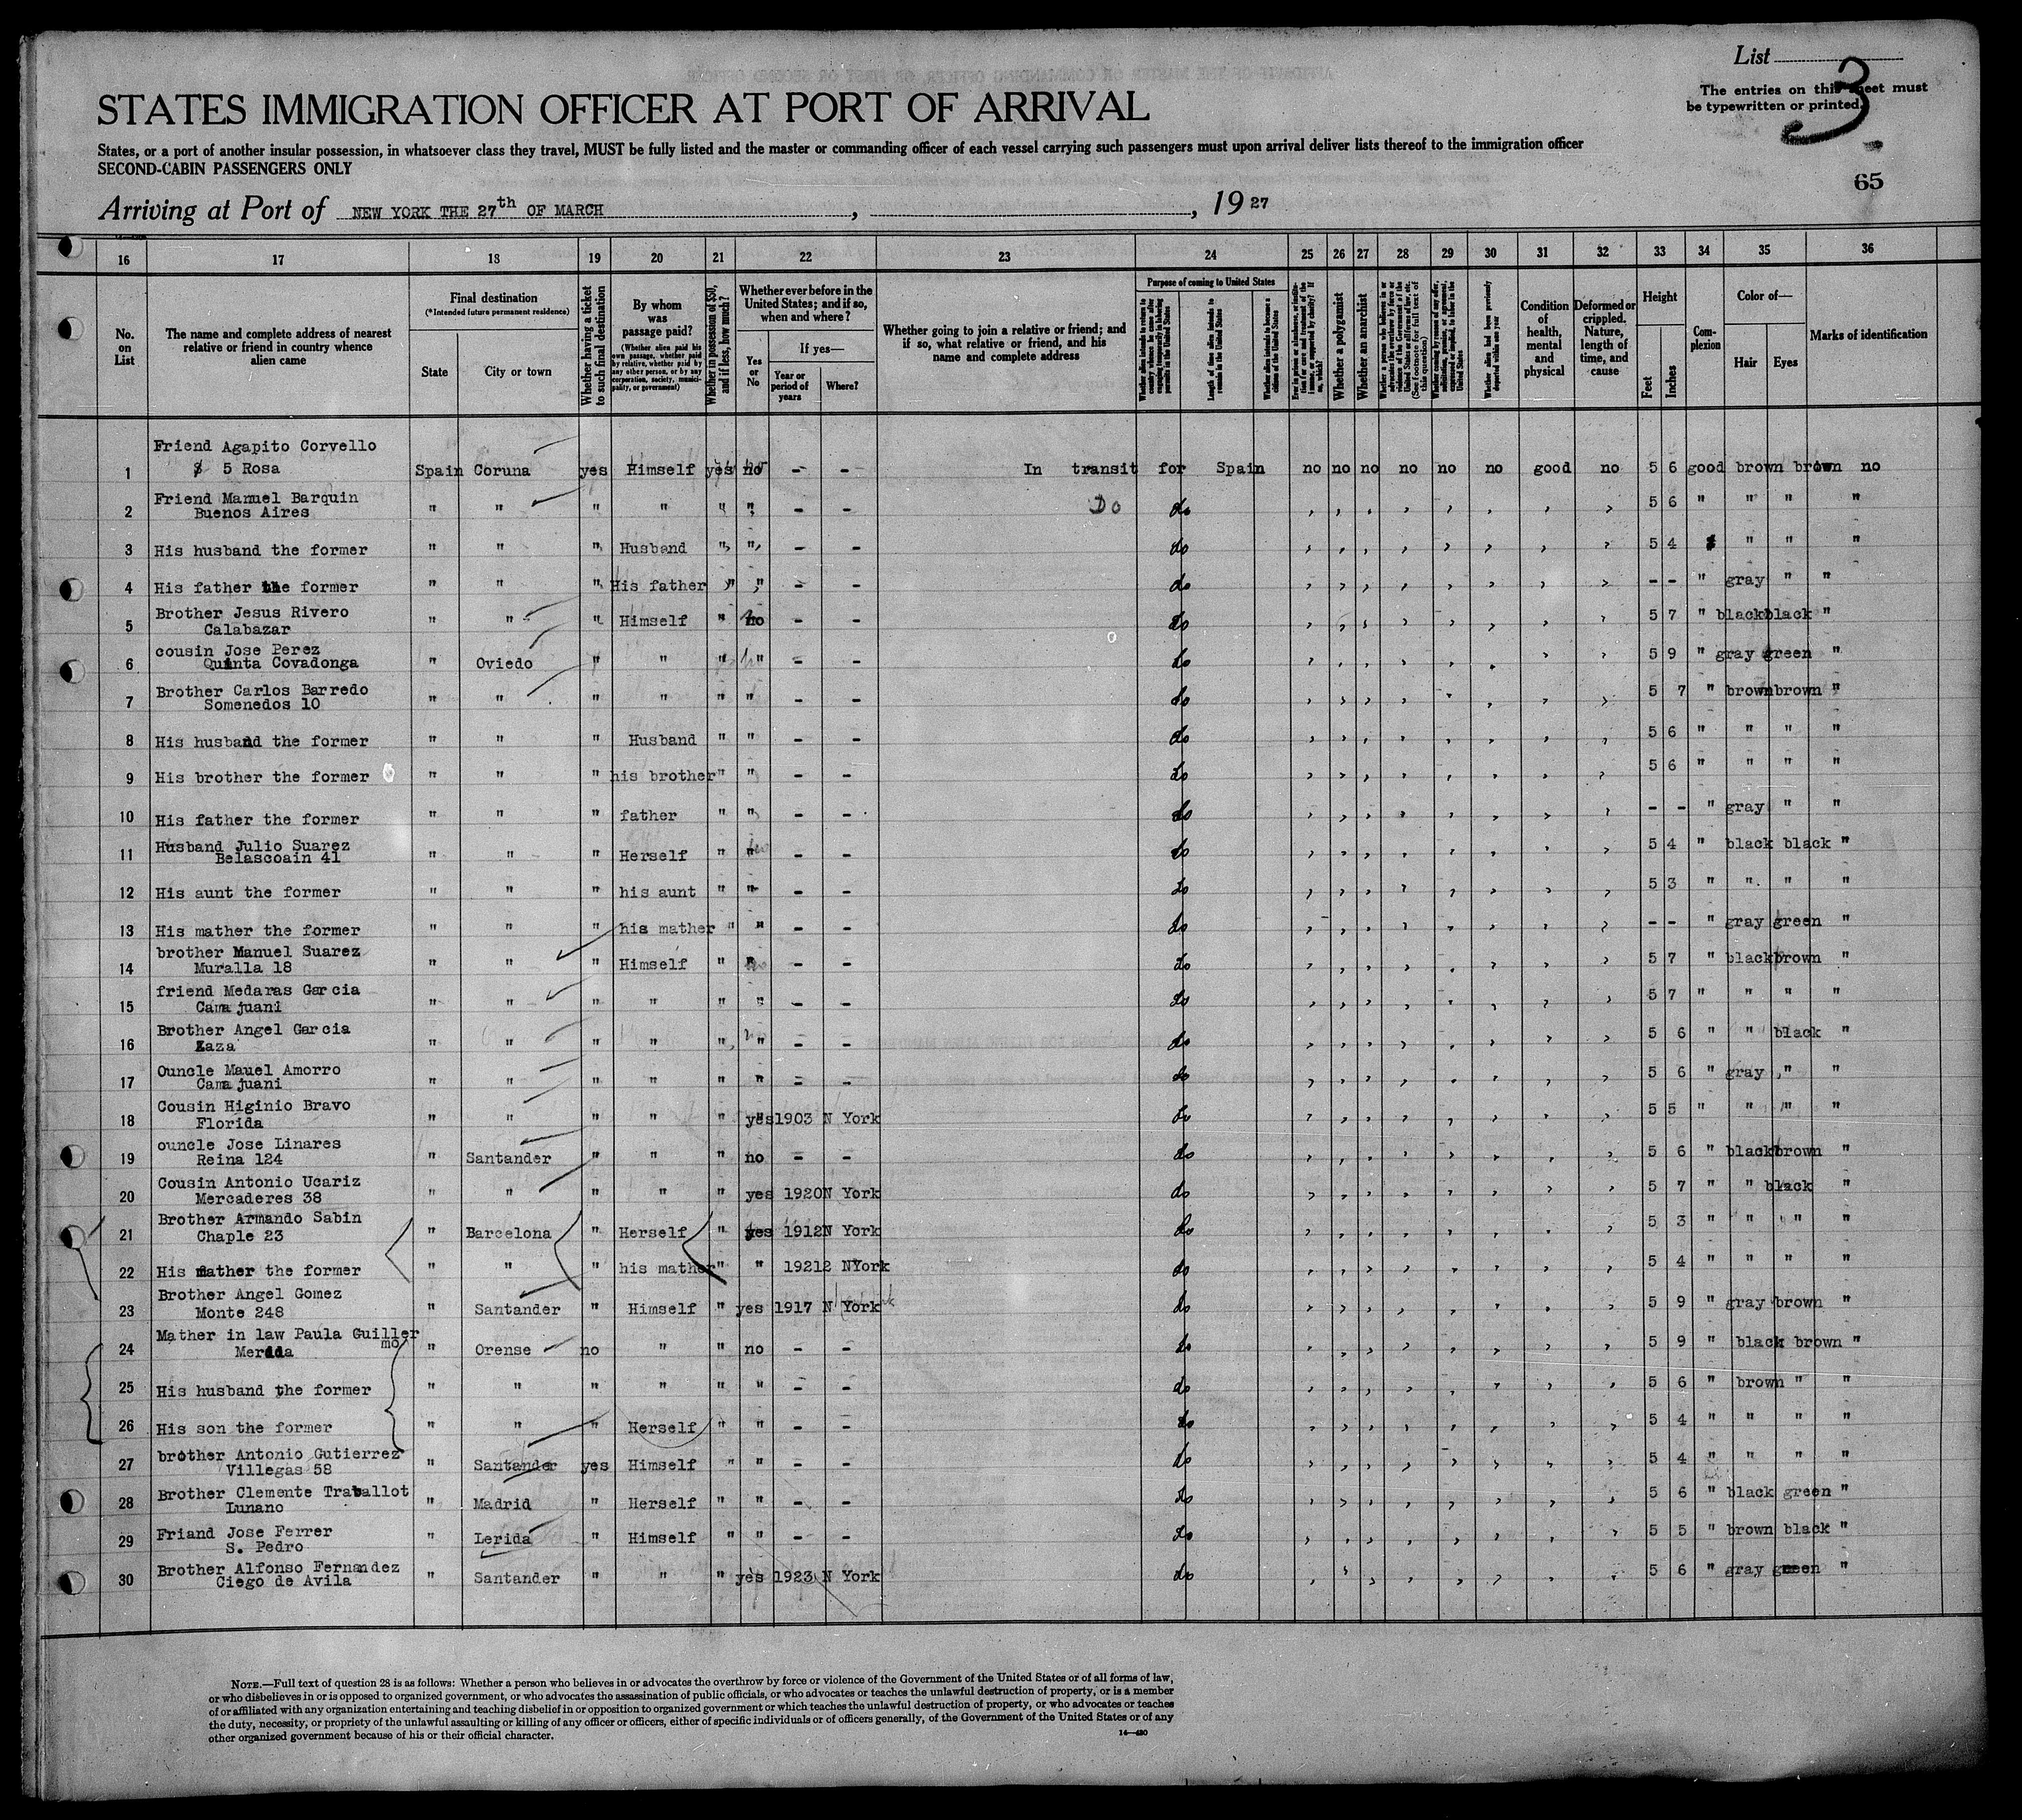 List
3
The entries on this sheet must
be typewritten or printed.
STATES IMMIGRATION OFFICER AT PORT OF ARRIVAL
States, or a port of another insular possession, in whatsoever class they travel, MUST be fully listed and the master or commanding officer of each vessel carrying such passengers must upon arrival deliver lists thereof to the immigration officer
SECOND-CABIN PASSENGERS ONLY
65
Arriving at Port of NEW YORK THE 27th OF MARCH , , 19 27
16 17 18 19 20 21 22 23 24 25 26 27 28 29 30 31 32 33 34 35 36
No. on List
The name and complete address of nearest relative or friend in country whence alien came
Final destination
(*Intended future permanent residence)
State
City or town
Whether having a ticket to such final destination
By whom was passage paid?
(Whether alien paid his own passage, whether paid by relative, whether paid by any other person, or by any corporation, society, municipality, or government)
Whether in possession of $50, and if less, how much?
Whether ever before in the United States; and if so, when and where?
Yes or No
If yes—
Year or period of years
Where?
Whether going to join a relative or friend; and if so, what relative or friend, and his name and complete address
Purpose of coming to United States
Length of time alien intends to remain in the United States
Whether alien intends to become a citizen of the United States
Whether a polygamist
Whether an anarchist
Condition of health, mental and physical
Deformed or crippled. Nature, length of time, and cause
Height
Feet
Inches
Complexion
Color of—
Hair
Eyes
Marks of identification
Friend Agapito Corvello
1 5 Rosa Spain Coruna yes Himself yes no - - In transit for Spain no no no no no no good no 5 6 good brown brown no
Friend Manuel Barquin
2 Buenos Aires " " " " " " - - Do do 5 6 " " " "
3 His husband the former " " " Husband " " - - do 5 4 " " "
4 His father the former " " " His father " " - - do - - " gray " "
Brother Jesus Rivero
5 Calabazar " " " Himself " no - - do 5 7 " black black "
cousin Jose Perez
6 Quinta Covadonga " Oviedo " " " " - - do 5 9 " gray green "
Brother Carlos Barredo
7 Somenedos 10 " " " " " " - - do 5 7 " brown brown "
8 His husband the former " " " Husband " " - - do 5 6 " " " "
9 His brother the former " " " his brother " " - - do 5 6 " " " "
10 His father the former " " " father " " - - do - - " gray " "
Husband Julio Suarez
11 Belascoain 41 " " " Herself " " - - do 5 4 " black black "
12 His aunt the former " " " his aunt " " - - do 5 3 " " " "
13 His mather the former " " " his mather " " - - do - - " gray green "
brother Manuel Suarez
14 Muralla 18 " " " Himself " " - - do 5 7 " black brown "
friend Medaras Garcia
15 Camajuani " " " " " " - - do 5 7 " " " "
Brother Angel Garcia
16 Zaza " " " " " " - - do 5 6 " " black "
Ouncle Mauel Amorro
17 Camajuani " " " " " " - - do 5 6 " gray " "
Cousin Higinio Bravo
18 Florida " " " " " yes 1903 N York do 5 5 " " " "
ouncle Jose Linares
19 Reina 124 " Santander " " " no - - do 5 6 " black brown "
Cousin Antonio Ucariz
20 Mercaderes 38 " " " " " yes 1920 N York do 5 7 " " black "
Brother Armando Sabin
21 Chaple 23 " Barcelona " Herself " yes 1912 N York do 5 3 " " " "
22 His mather the former " " " his mather " " 19212 NYork do 5 4 " " " "
Brother Angel Gomez
23 Monte 248 " Santander " Himself " yes 1917 N York do 5 9 " gray brown "
Mather in law Paula Guiller
mo
24 Merdda " Orense no " " no - - do 5 9 " black brown "
25 His husband the former " " " " " " - - do 5 6 " brown " "
26 His son the former " " " Herself " " - - do 5 4 " " " "
brother Antonio Gutierrez
27 Villegas 58 " Santander yes Himself " " - - do 5 4 " " " "
Brother Clemente Traballot
28 Lunano " Madrid " Herself " " - - do 5 6 " black green "
Friand Jose Ferrer
29 S. Pedro " Lerida " Himself " " - - do 5 5 " brown black "
Brother Alfonso Fernandez
30 Ciego de Avila " Santander " " " yes 1923 N York do 5 6 " gray green "
NOTE.—Full text of question 28 is as follows: Whether a person who believes in or advocates the overthrow by force or violence of the Government of the United States or of all forms of law,
or who disbelieves in or is opposed to organized government, or who advocates the assassination of public officials, or who advocates or teaches the unlawful destruction of property, or is a member
of or affiliated with any organization entertaining and teaching disbelief in or opposition to organized government or which teaches the unlawful destruction of property, or who advocates or teaches
the duty, necessity, or propriety of the unlawful assaulting or killing of any officer or officers, either of specific individuals or of officers generally, of the Government of the United States or of any
other organized government because of his or their official character.
14—430